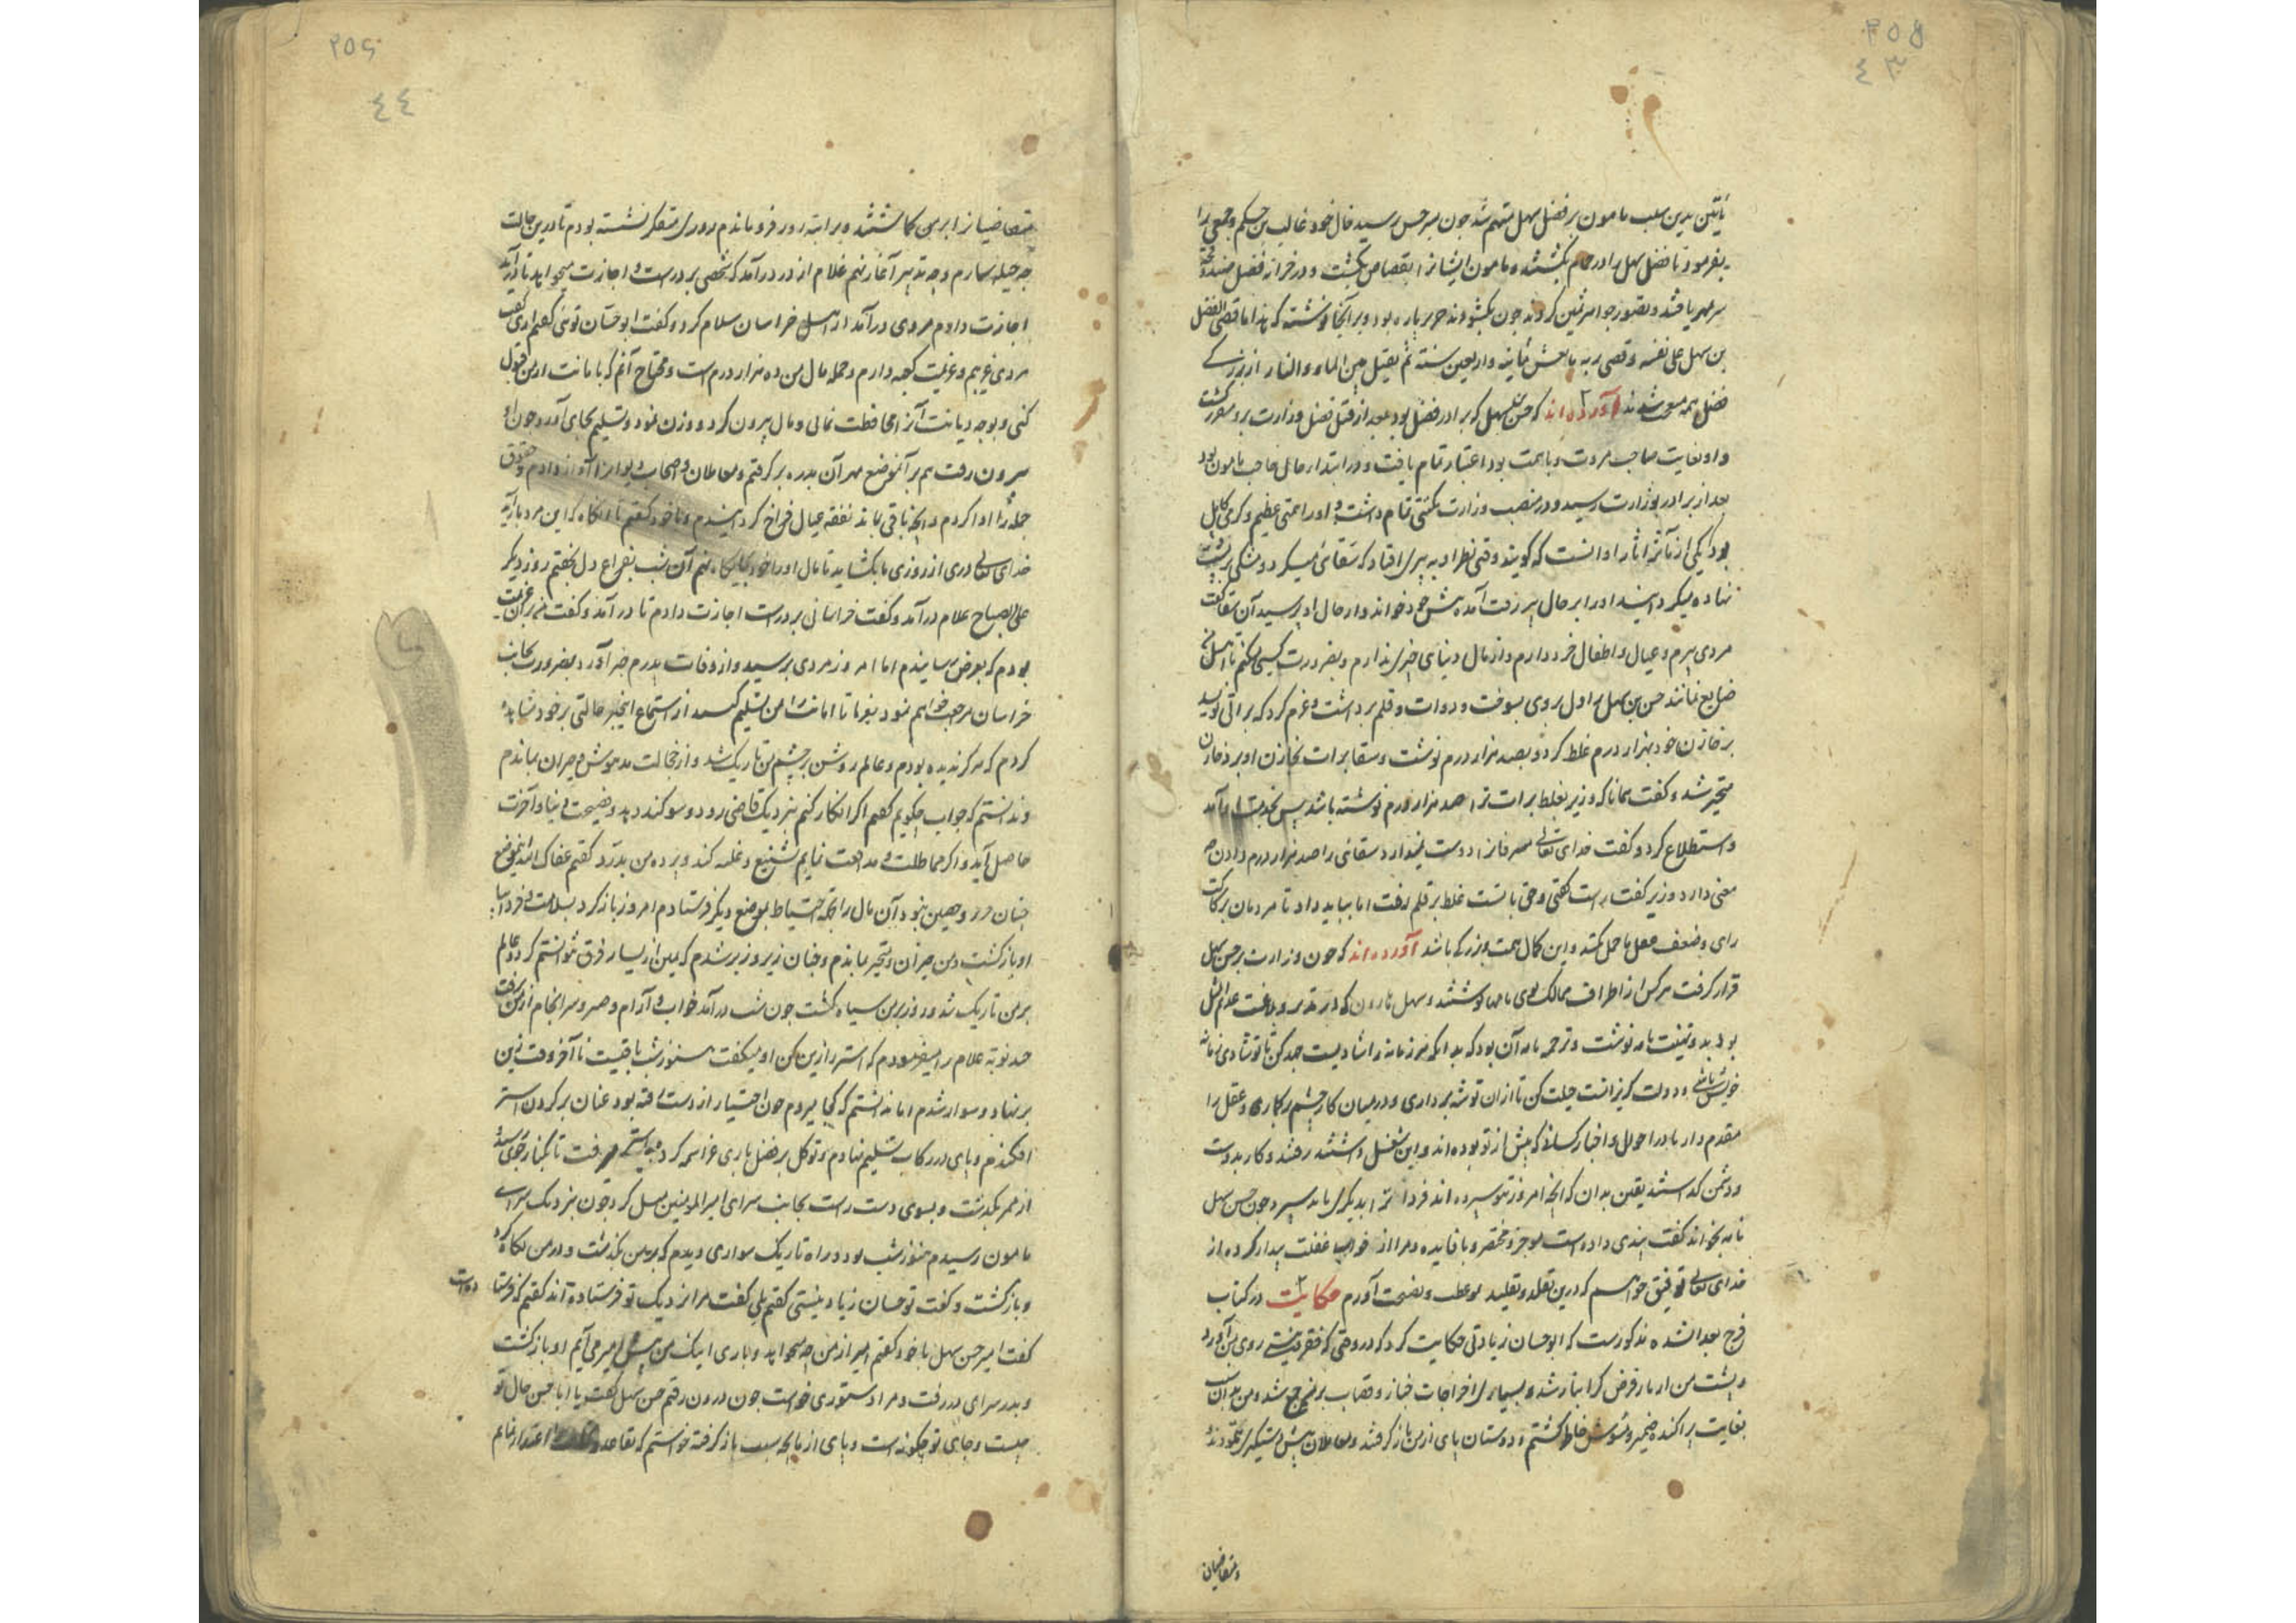 یقین بدین سبب مامون بر فضل سهل متهم شد چون بسرخس رسید خال خود غالب بن حکم و جمعی را
بفرمود تا فضل سهل را در حمام بکشتند و مامون ایشانرا بقصاص بکشت و در خزانه فضل
سر بمهر یافتند و تصور جواهر ثمین کردند چون بکشودند حریر پاره بود و بر آنجا نوشته که هذا ما قضی الفضل
بن سهل علی نفسه و قضی ربه یعیش ثمانیة و اربعین سنة ثم یقتل بین الماء و النار از بزرکی
فضل همه شدند آورده اند که حسن سهل که برادر فضل بود بعد از قتل فضل وزارت برو مقرر کشت
و او بغایت صاحب مروت و باهمت بود اعتبار تمام یافت و در ابتدا حاجب مامون بود
بعد از برادر بوزارت رسید و در منصب وزارت تمام داشت و او را همتی عظیم و کرمی کامل
بود یکی از مآثر ایثار او آنست که کویند وقتی نظر او به پیری افتاد که سقائی میکرد و مشکی بر پشت
نهاده میکردانید او را بر حال پیر رقت آمد پیش خود خواند و از حال او پرسید آن سقا کفت
مردی پیرم و عیال و اطفال خرد دارم و از مال دنیا چیزی ندارم و بضرورت کسبی میکنم تا
ضایع نمانند حسن بن سهل را دل بروی بسوخت و دوات و قلم برداشت و عزم کرد که براتی نویسد
بر خازن خود بهزار درم غلط کرد و بصد هزار درم نوشت و سقا برات بخازن او برد خازن
متحیر شد و کفت همانا که وزیر بغلط برات ترا صد هزار درم نوشته باشد پس بخدمت او آمد
و استطلاع کرد و کفت خدای تعالی مسرفانرا دوست نمیدارد سقائی را صد هزار درم دادن چه
معنی دارد وزیر کفت راست کفتی و حق با تست غلط بر قلم رفت اما بباید داد تا مردمان
رای و ضعف عقل ما حمل نکنند و این کمال همت و بزرکی باشد آورده اند که چون وزارت بر حسن سهل
قرار کرفت هر کس از اطراف ممالک بوی نامها نوشتند و سهل هارون که در تدبیر و بلاغت عدیم المثل
بود بدو تهنیت نامه نوشت و ترجمه نامه آن بود که بدانکه هر زمانه را شادیست جهد کن تا تو شادی زمانه
خویش باشی و دولت کریزانست حیلت کن تا ازان توشه برداری و در میان کار چشم بر کماری و عقل را
مقدم دار و در احوال و اخبار کسانی که پیش از تو بوده اند و این شغل داشتند رفتند و کار بدوست
و دشمن کذاشتند یقین بدان که آنچه امروز بتو سپرده اند فردا ترا بدیکری باید سپرد چون حسن سهل
نامه بخواند کفت پندی داده است موجز و مختصر و با فایده و مرا از خواب غفلت بیدار کرده از
خدای تعالی توفیق خواهم که درین تقلد و تقلید موعظت و نصیحت آورم حکایت در کتاب
فرج بعد الشده مذکورست که ابو حسان زیادی حکایت کرد که در وقتی که فقر و نیستی روی بمن آورد
و پشت من از بار قرض کرانبار شد و بسیاری اخراجات خباز و قصاب بر من جمع شد و من بدان سبب
بغایت پراکنده ضمیر و مشوش خاطر کشتم و دوستان پای از من باز کرفتند و معاملان پیش دستکیری ننمودند
و متقاضیان
متقاضیانرا بر من کماشتند و بر در فرو ماندم روزی متفکر نشسته بودم تا درین حالت
چه حیله سازم و چه تدبیر آغاز نهم غلام از در درآمد که شخصی بر درست و اجازت میخواهد تا درآید
اجازت دادم مردی درآمد از اهل خراسان سلام کرد و کفت ابو حسان توئی کفتم آری کفت
مردی غریبم و عزیمت کعبه دارم و جمله مال من ده هزار درم است و محتاج آنم که بامانت از من قبول
کنی و بوجه دیانت آنرا محافظت نمائی و مال بیرون کرد و وزن نمود و تسلیم بجای آورد چون او
بیرون رفت هم بر آنموضع مهر آن بدره بر کرفتم و معاملان و اصحاب دیون را آواز دادم و حقوق
جمله را ادا کردم و آنچه باقی ماند نفقه عیال فراخ کردانیدم و با خود کفتم تا آنکاه که این مرد بازآید
خدای تعالی دری از روزی ما بکشاید تا مال او را بجایکاه نهم آن شب بفراغ دل بخفتم روز دیکر
علی الصباح غلام درآمد و کفت خراسانی بر درست اجازت دادم تا درآمد و کفت من بر آن عزیمت
بودم که بعرض رسانیدم اما امروز مردی برسید و از وفات پدرم خبر آورد بضرورت بجانب
خراسان مراجعت خواهم نمود بفرما تا امانت را بمن تسلیم کنند از استماع اینخبر حالتی بر خود مشاهده
کردم که هرکز ندیده بودم و عالم روشن بر چشم من تاریک شد و از خجالت مدهوش و حیران بماندم
و ندانستم که جواب چکویم کفتم اکر انکار کنم بنزدیک قاضی رود و سوکند دهد و فضیحت دنیا و آخرت
حاصل آید و اکر مماطلت و مدافعت نمایم تشنیع و غلبه کند و پرده من بدرد کفتم عفاک الله اینموضع
چنان حرز و حصین نبود آن مال را بجهة احتیاط بموضع دیکر فرستادم امروز باز کرد بسلامت و فردا بیا
او باز کشت و من حیران و متحیر بماندم و چنان زیر و زبر شدم که یمین از یسار فرق نتوانستم کرد و عالم
بر من تاریک شد و روز بر من سیاه کشت چون شب درآمد خواب و آرام و صبر و سرانجام از من برفت
چند نوبه غلام را میفرمودم که استر را زین کن او میکفت هنوز شب باقیست تا آخر وقت زین
بر نهاد و سوار شدم اما ندانستم که کجا میروم چون اختیار از دست رفته بود عنان بر کردن استر
افکندم و پای در رکاب تسلیم نهادم و توکل بر فضل باری عز اسمه کرد و استر میرفت تا بکنار جوی رسید
از ممر بکذشت و بسوی دست راست بجانب سرای امیر المومنین میل کرد چون بنزدیک سرای
مامون رسیدم هنوز شب بود و راه تاریک سواری دیدم که بر من بکذشت و در من نکاه کرد
و باز کشت و کفت تو حسان زیاد نیستی کفتم بلی کفت مرا نزدیک تو فرستاده اند کفتم که فرستاده است
کفت امیر حسن سهل با خود کفتم امیر از من چه میخواهد و باری اینک من پیش امیر می آیم او باز کشت
و بدر سرای در رفت و مرا دستوری خواست چون درون رفتم حسن سهل کفت یا ابا حسن حال تو
چیست و جای تو چکونه است و پای از ما بچه سبب باز کرفته خواستم که تقاعد اعتذار نمایم